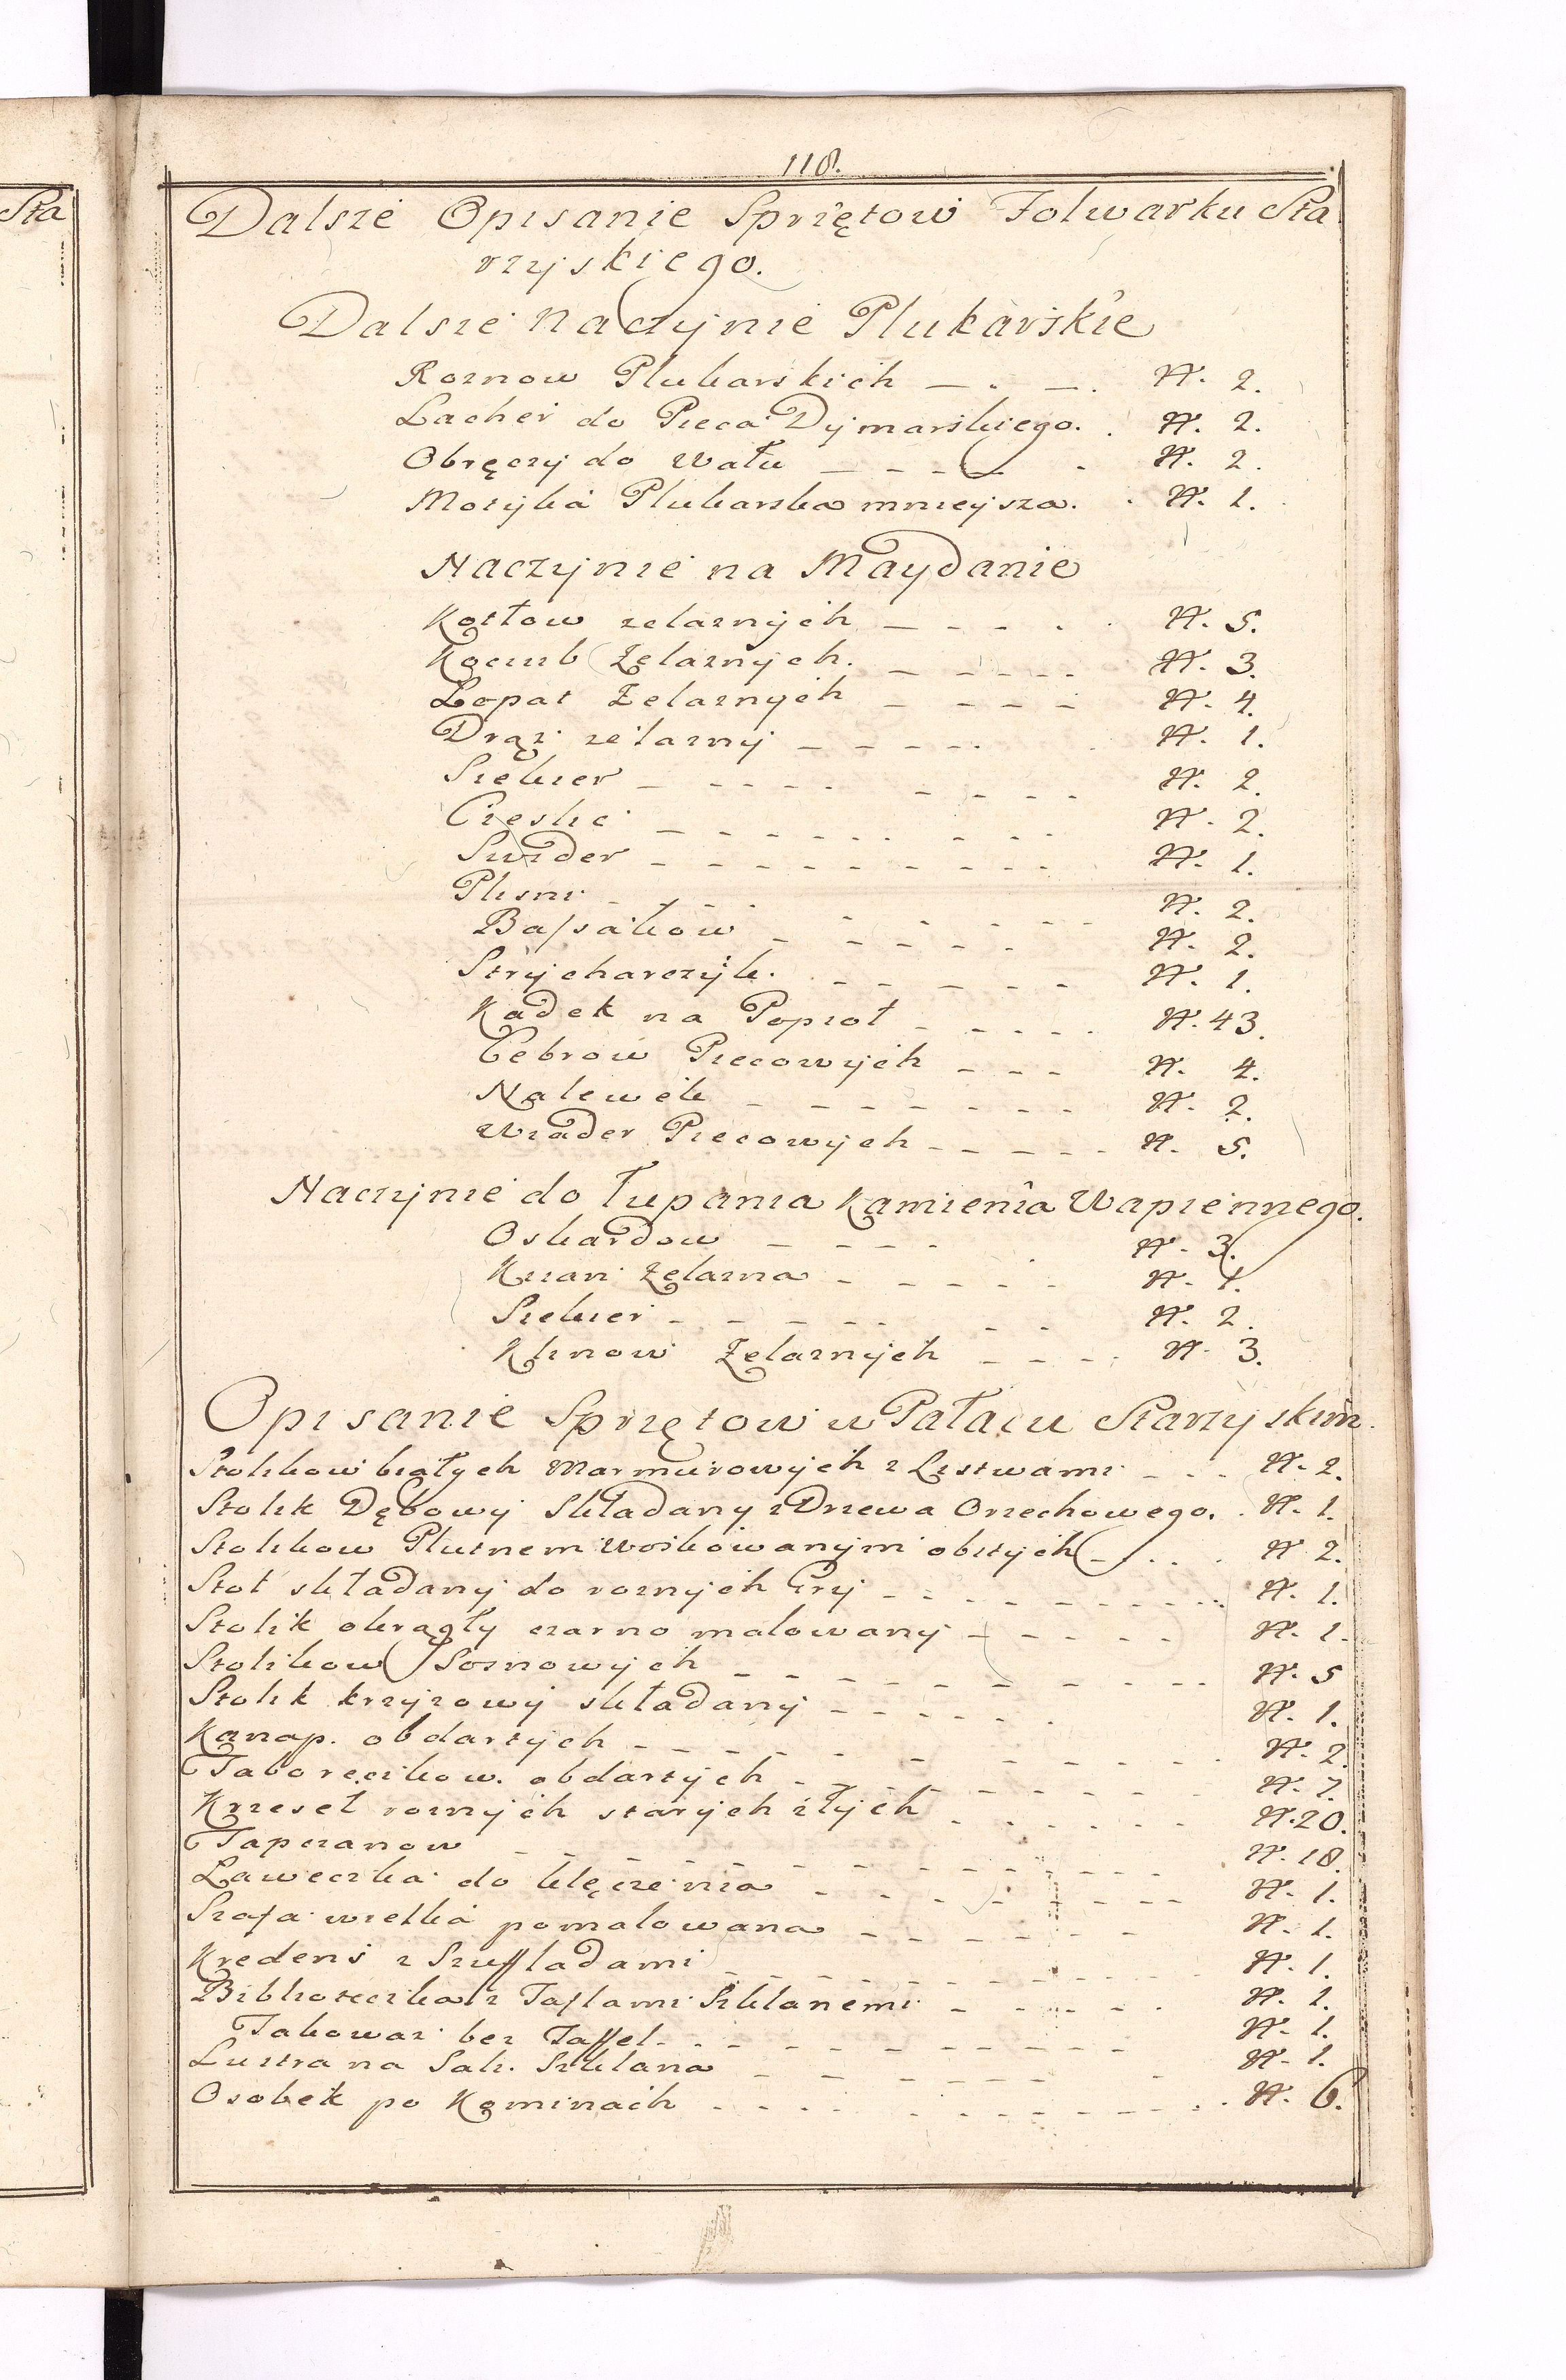 Sta
118.
Dalsze Opisanie Sprzętow Folwarku Sta
rzyskiego.
Dalsze Naczynie Plukarskie
Roznow Plukarskich N. 2.
Lacher do Pieca Dymarskiego. N. 2.
Obręczy do Wału N. 2.
Motyka Plukarska mnieysza. N. 1.
Naczynie na Maydanie
Kotłow zelaznych N. 5.
Kociub Zelaznych. N. 3.
Lopat Zelaznych N. 4.
Drąz zelazny N. 1.
Siekier N. 2.
Cieslic N. 2.
Swider N. 1.
Plisni N. 2.
Bassakow N. 2.
Strycharczyk. N. 1.
Kadek na Popioł N. 43.
Cebrow Piecowych N. 4.
Nalewek N. 2.
Wiader Piecowych N. 5.
Naczynie do Łupania Kamienia Wapiennego.
Oskardow N. 3.
Kzian Zelazna N. 1.
Siekier N. 2.
Klinow Zelaznych N. 3.
Opisanie Sprzętow w Pałacu Starzyskim.
Stolikow białych Marmurowych z Listwami N. 2.
Stolik Dębowy Składany z Drzewa Orzechowego. N. 1.
Stolikow Plutnem Woskowanym obitych N. 2.
Stoł składany do roznych Gry N. 1.
Stolik okrągły czarno malowany N. 1.
Stolikow Sosnowych N. 5
Stolik krzyzowy składany N. 1.
Kanap. obdartych N. 2.
Taboreczikow. obdartych N. 7.
Krzeseł roznych starych złych N. 20.
Tapczanow N. 18.
Laweczka do klęczenia N. 1.
Szafa wielka pomalowana N. 1.
Kredens z Szuffladami N. 1.
Biblioteczka z Taflami Szklanemi N. 1.
Takowaz bez Taffel. N. 1.
Lustra na Sali. Szklana N. 1.
Osobek po Kominach N. 6.